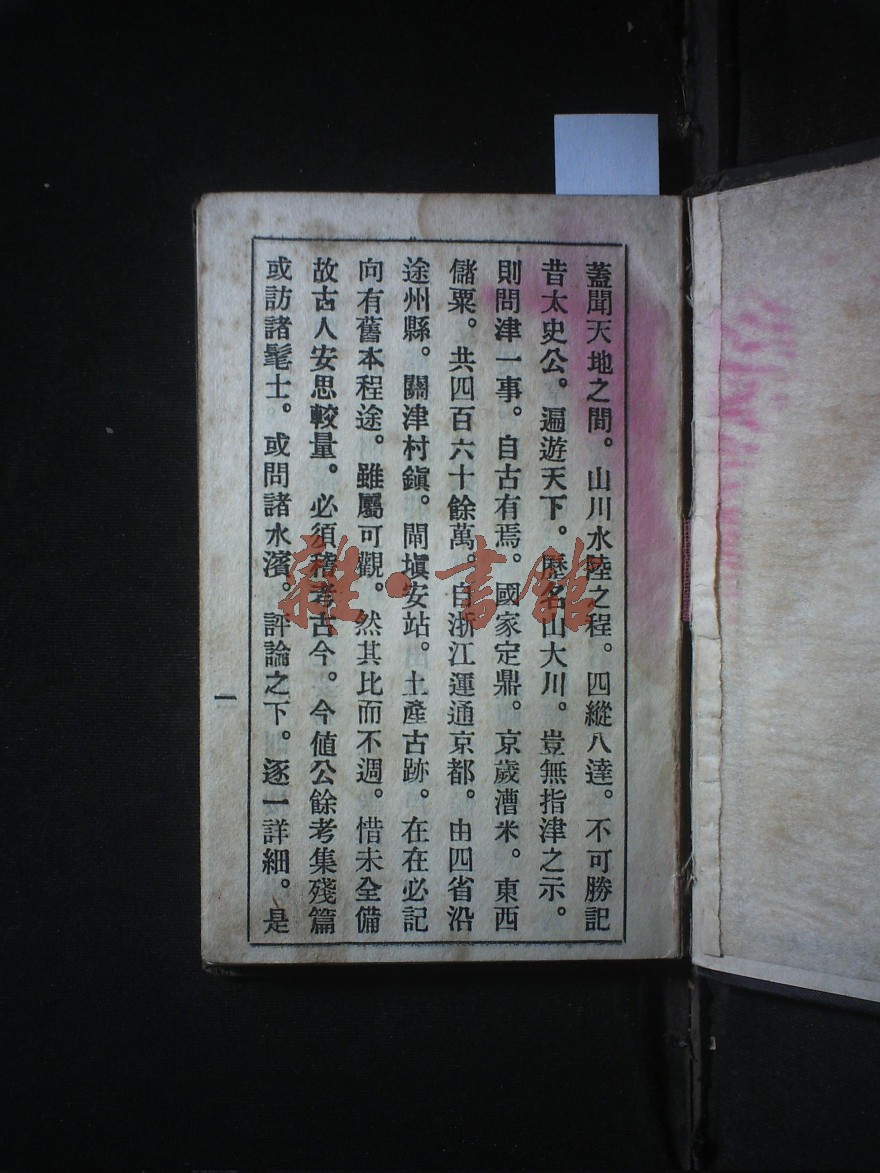 蓋聞天地之間。山川水陸之程。四縱八達。不可勝記
昔太史公。遍遊天下。歷名山大川。豈無指津之示。
則問津一事。自古有焉。國家定鼎。京歲漕米。東西
儲粟。共四百六十餘萬。自浙江運通京都。由四省沿
途州縣。關津村鎮。閘塡安站。土產古跡。在在必記
向有舊本程途。雖屬可觀。然其比而不週。惜未全備
故古人安思較量。必須稽考古今。今值公餘考集殘篇
或訪諸髦士。或問諸水濱。評論之下。逐一詳細。是
一
雜·書館